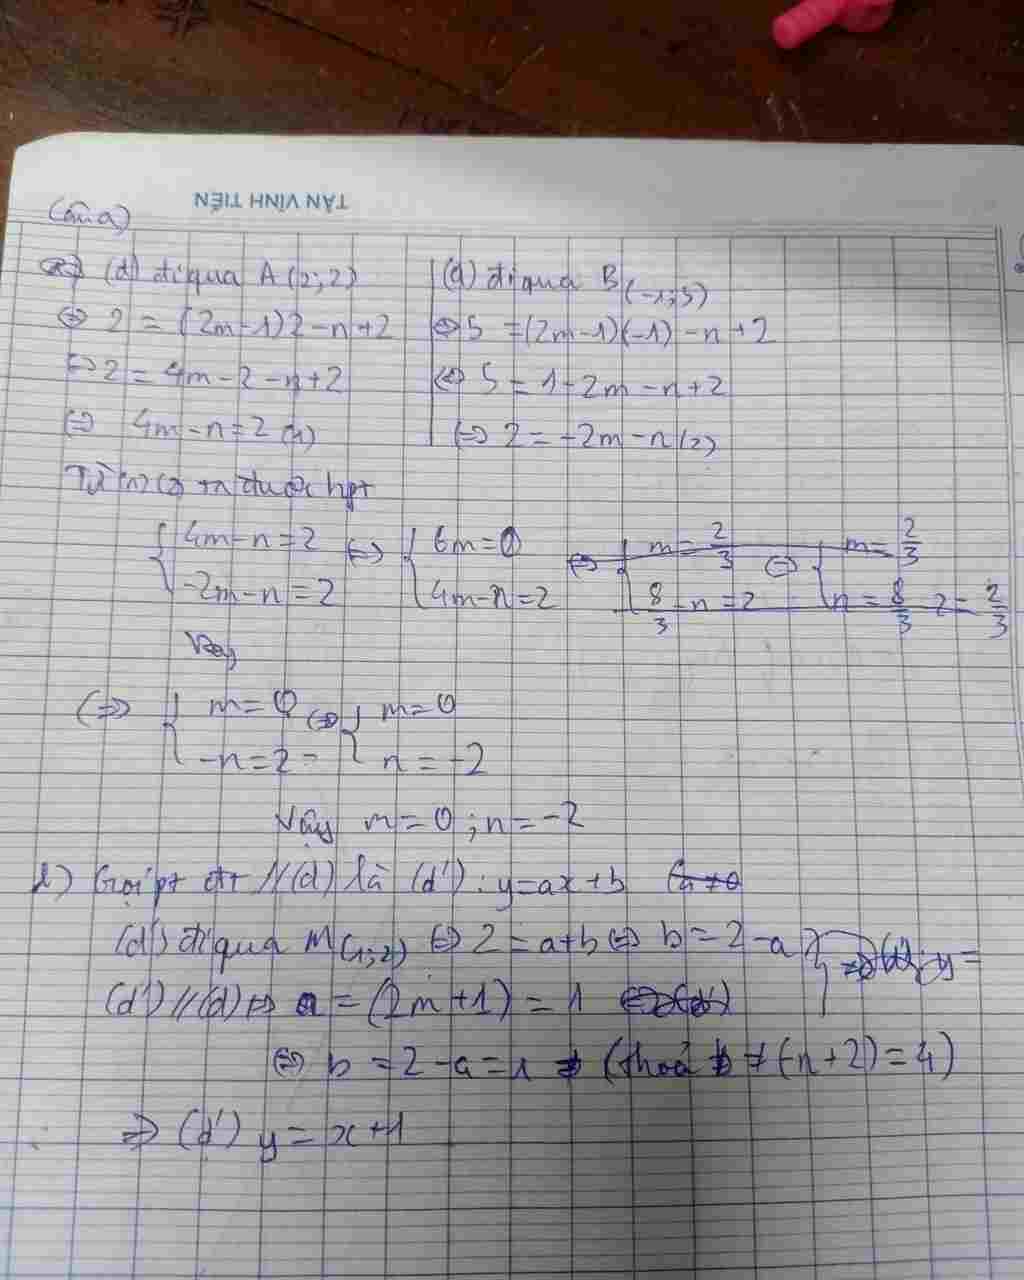 TÂN VĨNH TIẾN
Câu a)
(d) đi qua A(2;2)
⇔ 2 = (2m-1)2 - n+2
⇔ 2 = 4m-2-n+2
⇔ 4m-n=2 (1)
(d) đi qua B(-1;5)
⇔ 5 = (2m-1)(-1) - n + 2
⇔ 5 = 1-2m-n+2
⇔ 2 = -2m-n (2)
Từ (1) (2) ta được hpt
{ 4m-n=2 ⇔ { 6m=0 ⇔ { m=2/3 ⇔ { m=2/3
{ -2m-n=2 { 4m-n=2 { 8/3-n=2 { n=8/3-2=2/3
Vậy
⇔ { m=0 ⇔ { m=0
{ -n=2 { n=-2
Vậy m=0; n=-2
Gọi pt đt //(d) là (d'): y=ax+b (a≠0
(d') đi qua M(1;2) ⇔ 2=a+b ⇔ b=2-a } y=
(d')//(d) ⇔ a=(2m+1)=1
⇔ b=2-a=1 (thoả b ≠ (-n+2)=4)
⇒ (d') y=x+1